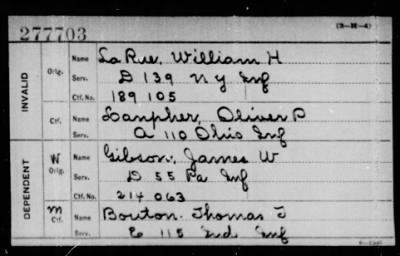 277703
(3-H-4)
INVALID
Orig.
Name LaRue, William H
Serv. D 139 N Y Inf
Ctf. No. 189 105
Ctf.
Name Lanpher, Oliver P
Serv. A 110 Ohio Inf
DEPENDENT
W
Orig.
Name Gibson, James W
Serv. D 55 Pa Inf
Ctf. No. 214 063
m
Ctf.
Name Bouton Thomas T
Serv. E 115 Ind. Inf